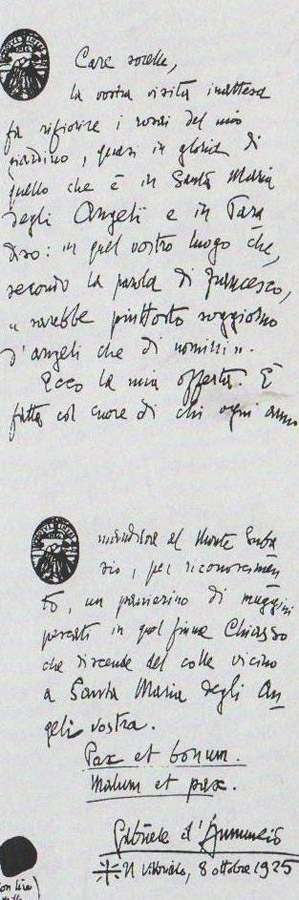 Care sorelle,
la vostra visita inattesa
fa rifiorire i rosai del mio
giardino, quasi in gloria di
quello che è in Santa Maria
degli Angeli e in Para
diso: in quel vostro luogo che,
secondo la parola di Francesco,
"sarebbe piuttosto soggiorno
d'angeli che di uomini".
Ecco la mia offerta. È
fatta col cuore di chi ogni anno
al Monte Suba
sio, per riconoscimen
to, un panierino di
pescati in quel fiume Chiascio
che discende dal colle vicino
a Santa Maria degli An
geli vostra.
Pax et bonum.
Malum et pax.
Gabriele d'Annunzio
Il Vittoriale, 8 ottobre 1925